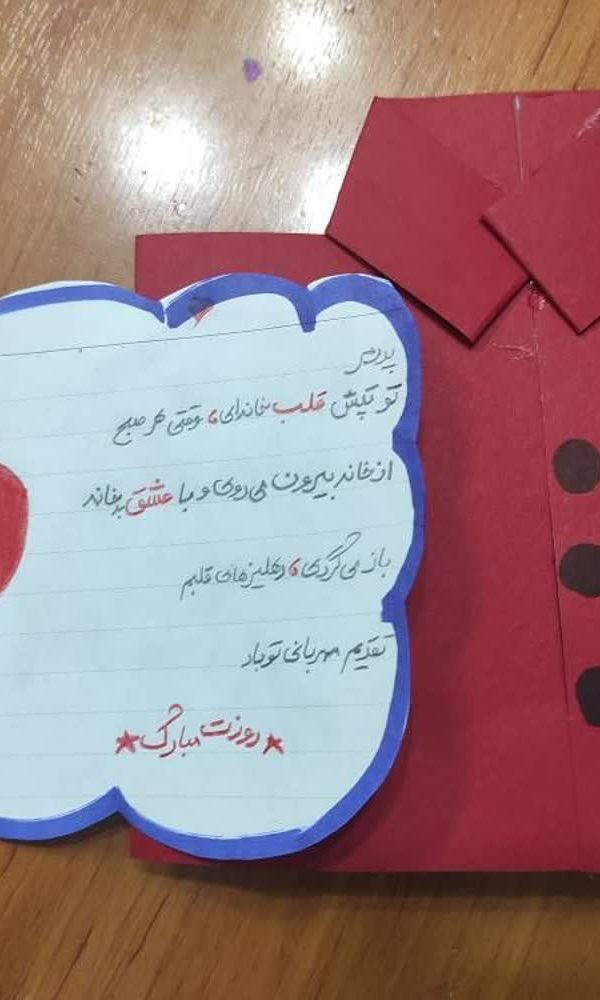 پدرم
تو تپش قلب خانه‌ای، وقتی هر صبح
از خانه بیرون می روی و با عشق به خانه
باز می گردی، دهلیزهای قلبم
تقدیم مهربانی تو باد
★ روزت مبارک ★